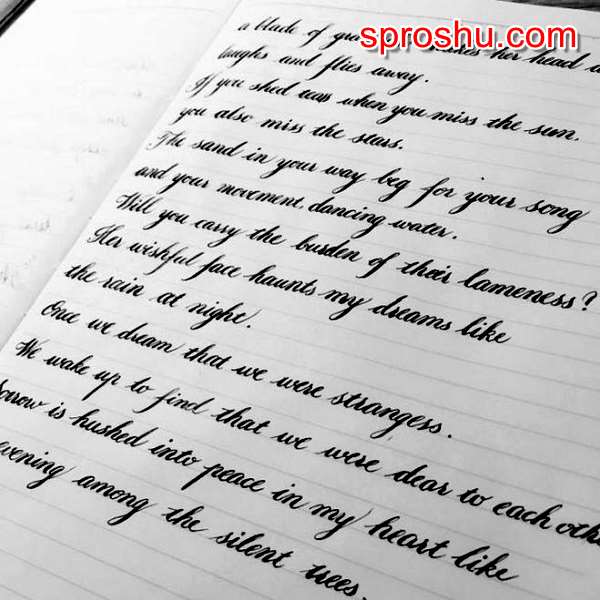 sproshu.com
a blade of shakes her head a
laughs and flies away.
If you shed tears when you miss the sun,
you also miss the stars.
The sand in your way beg for your song
and your movement, dancing water.
Will you carry the burden of their lameness?
Her wishful face haunts my dreams like
the rain at night.
Once we dream that we were strangers.
We wake up to find that we were dear to each othe
Sorrow is hushed into peace in my heart like
evening among the silent trees.